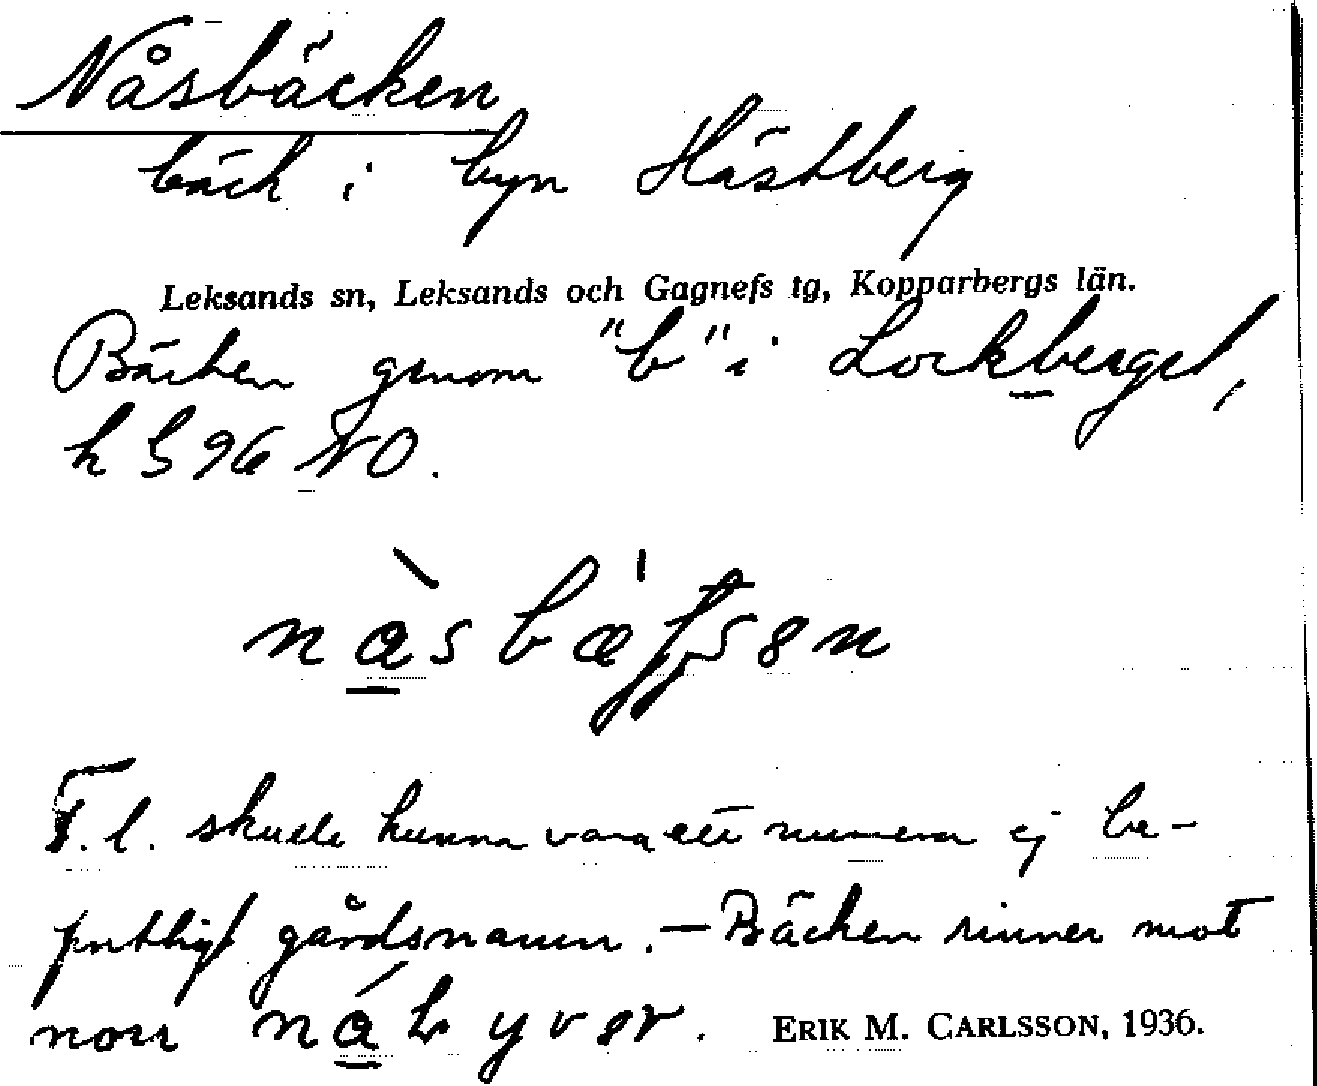 Nåsbäcken
bäck i byn Hästberg
Leksands sn, Leksands och Gagnefs tg, Kopparbergs län.
Bäcken genom "b" i Lockberget,
k S 96 NO.
F.l. skulle kunna vara ett numera ej be-
fintligt gårdsnamn. — Bäcken rinner mot
norr
ERIK M. CARLSSON, 1936.